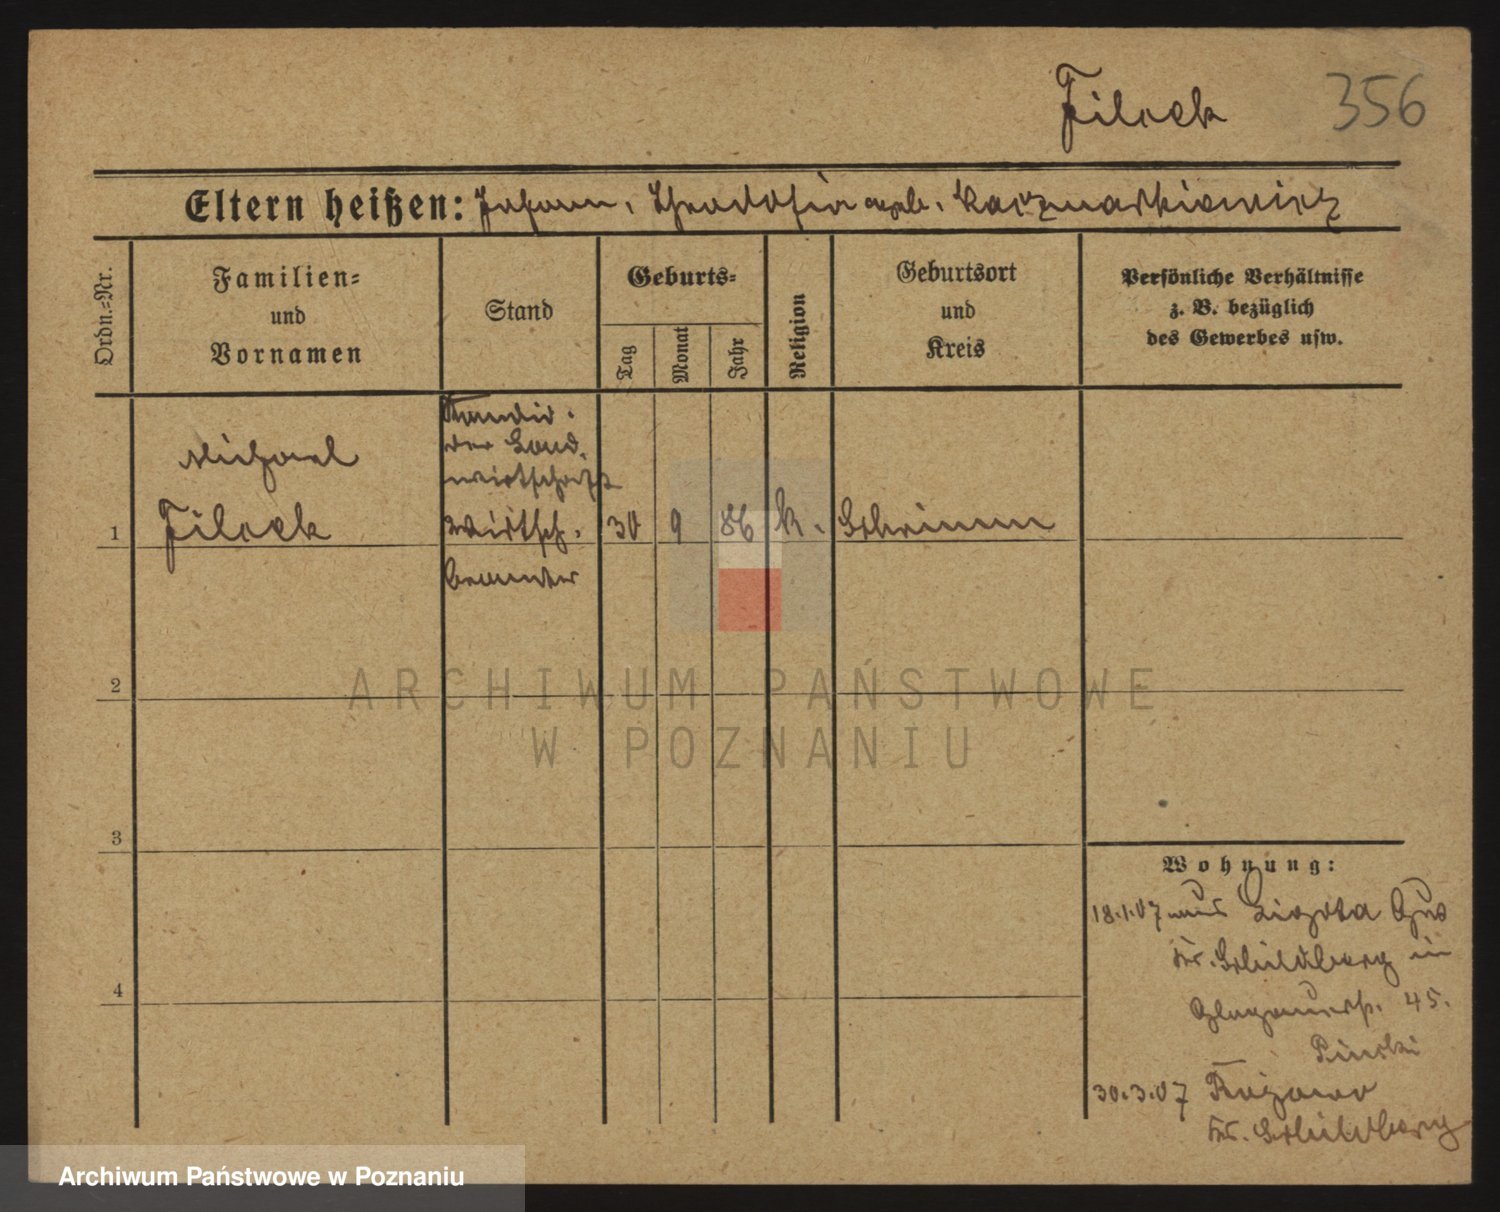 Filoek 356
Eltern heißen: Johann, Theodosia geb. Kaczmarkiewicz
Ordn.-Nr.
Familien-
und
Vornamen
Stand
Geburts-
Tag
Monat
Jahr
Religion
Geburtsort
und
Kreis
Persönliche Verhältnisse
z. B. bezüglich
des Gewerbes usw.
Michael
Filoek
der Land
wirtschaft
Wirtsch.
beamter
1
30 9 86 k. Schrimm
2
3
4
Wohnung:
18.1.07 aus Ligota
Kr. Schildberg in
Glogauerstr. 45.
30.3.07
Kr. Schildberg
ARCHIWUM PAŃSTWOWE
W POZNANIU
Archiwum Państwowe w Poznaniu